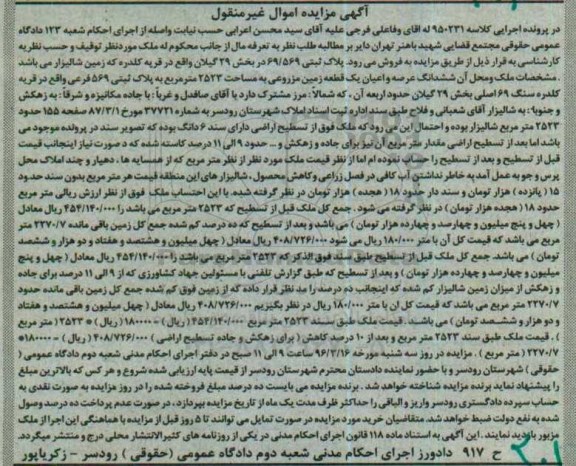 آگهی مزایده اموال غیرمنقول
در پرونده اجرایی کلاسه ۹۵۰۲۳۱ له آقای وفاعلی فرجی علیه آقای سید محسن اعرابی حسب نیابت واصله از اجرای احکام شعبه ۱۲۳ دادگاه
عمومی حقوقی مجتمع قضایی شهید باهنر تهران دایر بر مطالبه طلب نظر به تعرفه مال از جانب محکوم له ملک موردنظر توقیف و حسب نظریه
کارشناسی به قرار ذیل از طریق مزایده به فروش می رود. پلاک ثبتی ۶۹/۵۶۹ در بخش ۲۹ گیلان واقع در قریه کلدره که زمین شالیزار می باشد
. مشخصات ملک ومحل آن ششدانگ عرصه واعیان یک قطعه زمین مزروعی به مساحت ۲۵۲۳ مترمربع به پلاک ثبتی ۵۶۹ فرعی واقع در قریه
کلدره سنگ ۶۹ اصلی بخش ۲۹ گیلان حدود اربعه آن، که شمالاً: مرز مشترک دارد با آقای صافدل و غرباً: با جاده مکانیزه و شرقاً: به زهکش
و جنوبا: به شالیزار آقای شعبانی و فلاح طبق سند اداره ثبت اسناد املاک شهرستان رودسر به شماره ۳۷۷۲۱ مورخ ۸۷/۳/۱ صفحه ۱۵۵ حدود
۲۵۲۳ متر مربع شالیزار بوده و احتمال این می رود که ملک فوق از تسطیح اراضی دارای سند ۶ دانگ بوده که تصویر سند در پرونده موجود می
باشد اما بعد از تسطیح اراضی مقدار متر مربع آن نیز برای جاده و زهکش و... حدود ۹ الی ۱۱ درصد کاسته شده که در صورت نیاز اینجانب قیمت
قبل از تسطیح و بعد از تسطیح را حساب نموده ام اما از نظر قیمت ملک مورد نظر از نظر متر مربع که از همسایه ها، دهیار و چند املاک محل
پرس و جو به عمل آمد به خاطر نداشتن آب کافی در فصل زراعی و کاهش محصول، شالیزار های این منطقه قیمت هر متر مربع بدون سند حدود
۱۵ (پانزده) هزار تومان و سند دار حدود ۱۸ (هجده) هزار تومان در نظر گرفته شده. با این احتساب ملک فوق از نظر ارزش ریالی متر مربع
حدود ۱۸ (هجده هزار تومان) در نظر گرفته می شود. جمع کل ملک قبل از تسطیح که ۲۵۲۳ متر مربع می باشد را ۴۵۴/۱۴۰/۰۰۰ ریال معادل
(چهل و پنج میلیون و چهارصد و چهارده هزار تومان) می باشد و بعد از تسطیح که ده درصد کم شده جمع کل زمین باقی مانده ۲۲۷۰/۷ متر
مربع می باشد که قیمت کل آن با متر ۱۸۰/۰۰۰ ریال می شود ۴۰۸/۷۲۶/۰۰۰ ریال معادل (چهل میلیون و هشتصد و هفتاد و دو هزار و ششصد
تومان) می باشد. جمع کل ملک قبل از تسطیح طبق سند فوق الذکر که ۲۵۲۳ متر مربع می باشد را ۴۵۴/۱۴۰/۰۰۰ ریال معادل (چهل و پنج
میلیون و چهارصد و چهارده هزار تومان) و بعد از تسطیح که طبق گزارش تلفنی با مسئولین جهاد کشاورزی که از ۹ الی ۱۱ درصد برای جاده
و زهکش از میزان زمین شالیزار کم شده که اینجانب ده درصد را مد نظر قرار داده که از زمین فوق کم شده جمع کل زمین باقی مانده حدود
۲۲۷۰/۷ متر مربع می باشد که قیمت کل آن با متر ۱۸۰/۰۰۰ ریال در نظر بگیریم ۴۰۸/۷۲۶/۰۰۰ ریال معادل (چهل میلیون و هشتصد و هفتاد
و دو هزار و ششصد تومان) می باشد. قیمت ملک طبق سند ۲۵۲۳ متر مربع ۴۵۴/۱۴۰/۰۰۰ (ریال) = ۱۸۰۰۰۰ (ریال) * ۲۵۲۳ (متر مربع
). قیمت ملک طبق سند ۲۵۲۳ متر مربع و بعد از ۱۰ درصد کاهش (برای زهکش و جاده تسطیح اراضی) ۴۰۸/۷۲۶/۰۰۰ (ریال) = ۱۸۰۰۰۰*
۲۲۷۰/۷ (متر مربع). مزایده در روز سه شنبه مورخه ۹۶/۳/۱۶ ساعت ۹ الی ۱۱ صبح در دفتر اجرای احکام مدنی شعبه دوم دادگاه عمومی (
حقوقی) شهرستان رودسر و با حضور نماینده دادستان محترم شهرستان رودسر از قیمت پایه ارزیابی شده شروع و هر کس که بالاترین مبلغ
را پیشنهاد نماید برنده مزایده شناخته خواهد شد. برنده مزایده می بایست ده درصد مبلغ فروخته شده را در روز مزایده به صورت نقدی به
حساب سپرده دادگستری رودسر واریز و الباقی را حداکثر ظرف مدت یک ماه از تاریخ مزایده بپردازد، در صورت عدم پرداخت ده درصد وصول
شده به نفع دولت ضبط خواهد شد. متقاضیان خرید مورد مزایده در صورت تمایل می توانند تا ۵ روز قبل از مزایده با هماهنگی این اجرا از ملک
مزبور بازدید نمایند. این آگهی به استناد ماده ۱۱۸ قانون اجرای احکام مدنی در یکی از روزنامه های کثیرالانتشار محلی درج و منتشر میگردد.
ح ۹۱۷ دادورز اجرای احکام مدنی شعبه دوم دادگاه عمومی (حقوقی) رودسر - زکریاپور